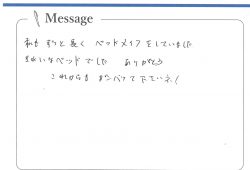 Message
私も ずっと長く ベッドメイクをしていました
きれいなベッドでした ありがとう
これからも がんばって下さいネ!